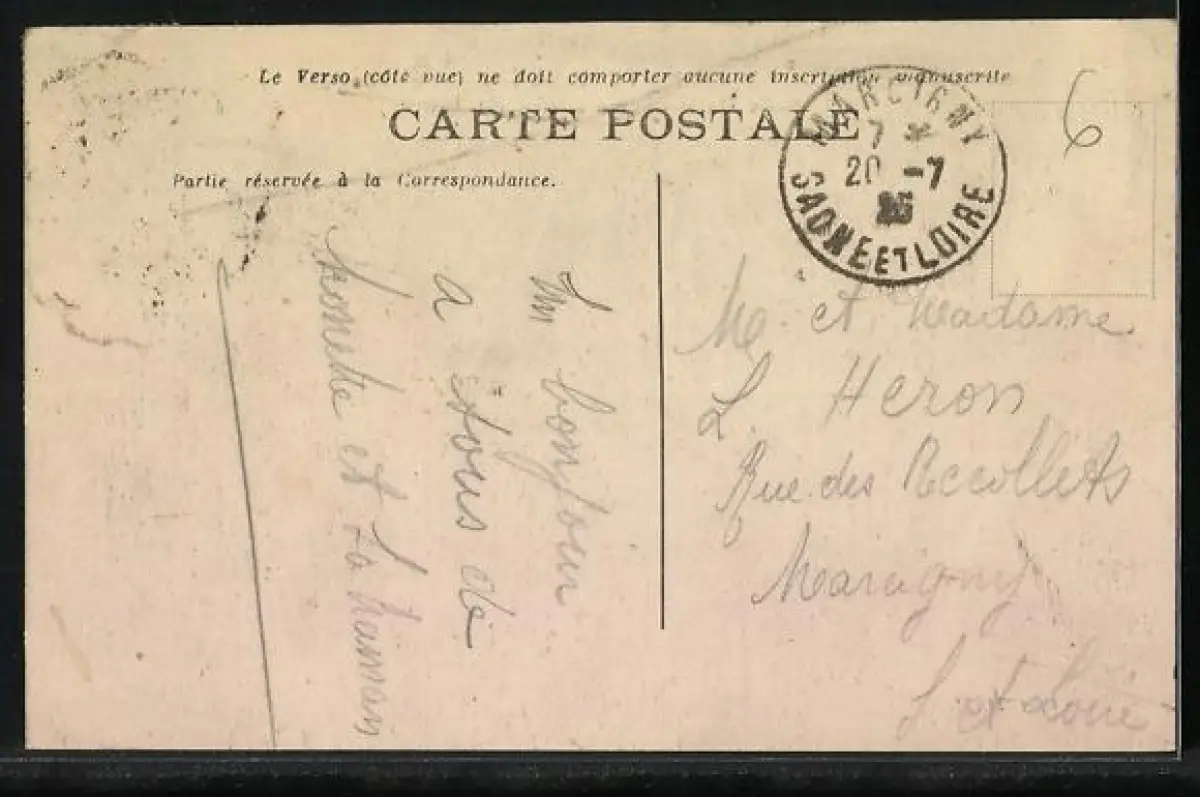 Le Verso (côté vue) ne doit comporter aucune inscription manuscrite
CARTE POSTALE
Partie réservée à la Correspondance.
MARCIGNY
7 *
20 -7
25
SAONE ET LOIRE
6
Un bonjour
a tous de
et sa Maman
M. et Madame
L. HERON
Rue des Recollets
Marcigny
S. et Loire